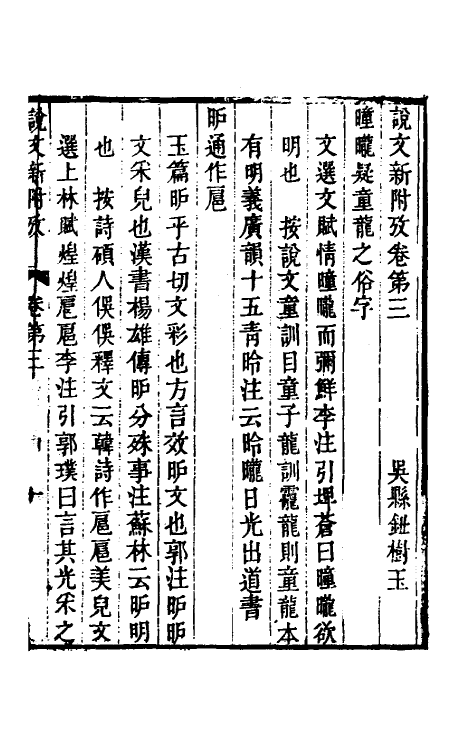 說文新附攷卷第三　吳縣鈕樹玉
曈曨疑童龍之俗字
文選文賦情曈曨而彌鮮李注引埤蒼曰曈曨欲
明也　按說文童訓目童子龍訓靇龍則童龍本
有明義廣韻十五青昤注云昤曨日光出道書
昈通作扈
玉篇昈乎古切文彩也方言效昈文也郭注昈昈
文采皃也漢書楊雄傳昈分殊事注蘇林云昈明
也　按詩碩人俁俁釋文云韓詩作扈扈美皃文
選上林賦煌煌扈扈李注引郭璞曰言其光采之
說文新附攷　卷第三　一